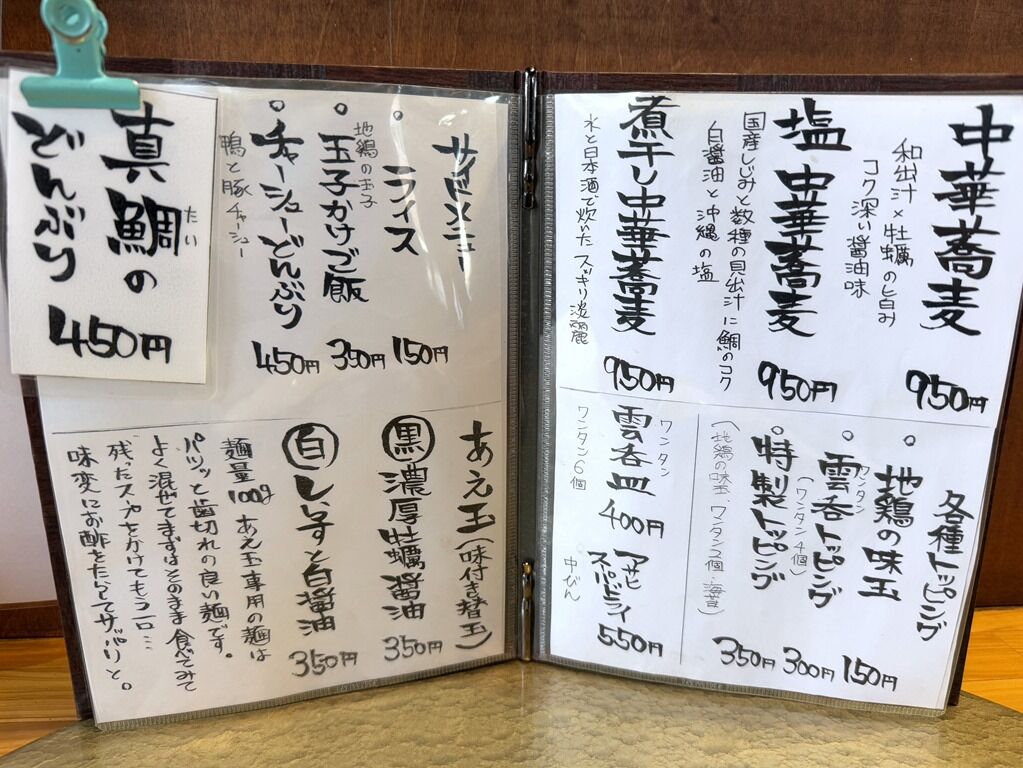 中華蕎麦
和出汁×牡蠣の旨み
コク深い醤油味
950円
塩中華蕎麦
国産しじみと数種の貝出汁に鯛のコク
白醤油と沖縄の塩
950円
煮干し中華蕎麦
水と日本酒で炊いたスッキリ淡麗
950円
各種トッピング
。地鶏の味玉
150円
。雲呑トッピング
ワンタン
(ワンタン4個)
300円
。特製トッピング
(地鶏の味玉、ワンタン2個、海苔)
350円
雲呑皿
ワンタン
ワンタン6個
400円
アサヒ
スーパードライ
中びん
550円
サイドメニュー
。ライス
150円
。玉子かけご飯
地鶏の玉子
350円
。チャーシューどんぶり
鴨と豚チャーシュー
450円
真鯛の
たい
どんぶり
450円
あえ玉(味付き替玉)
黒濃厚牡蠣醤油
350円
白しらすと白醤油
350円
麺量100g あえ玉専用の麺は
パツッと歯切れの良い麺です。
よく混ぜてまずはそのまま食べてみて
残ったスープをかけてもヨロ…
味変にお酢をたらしてサッパリと。